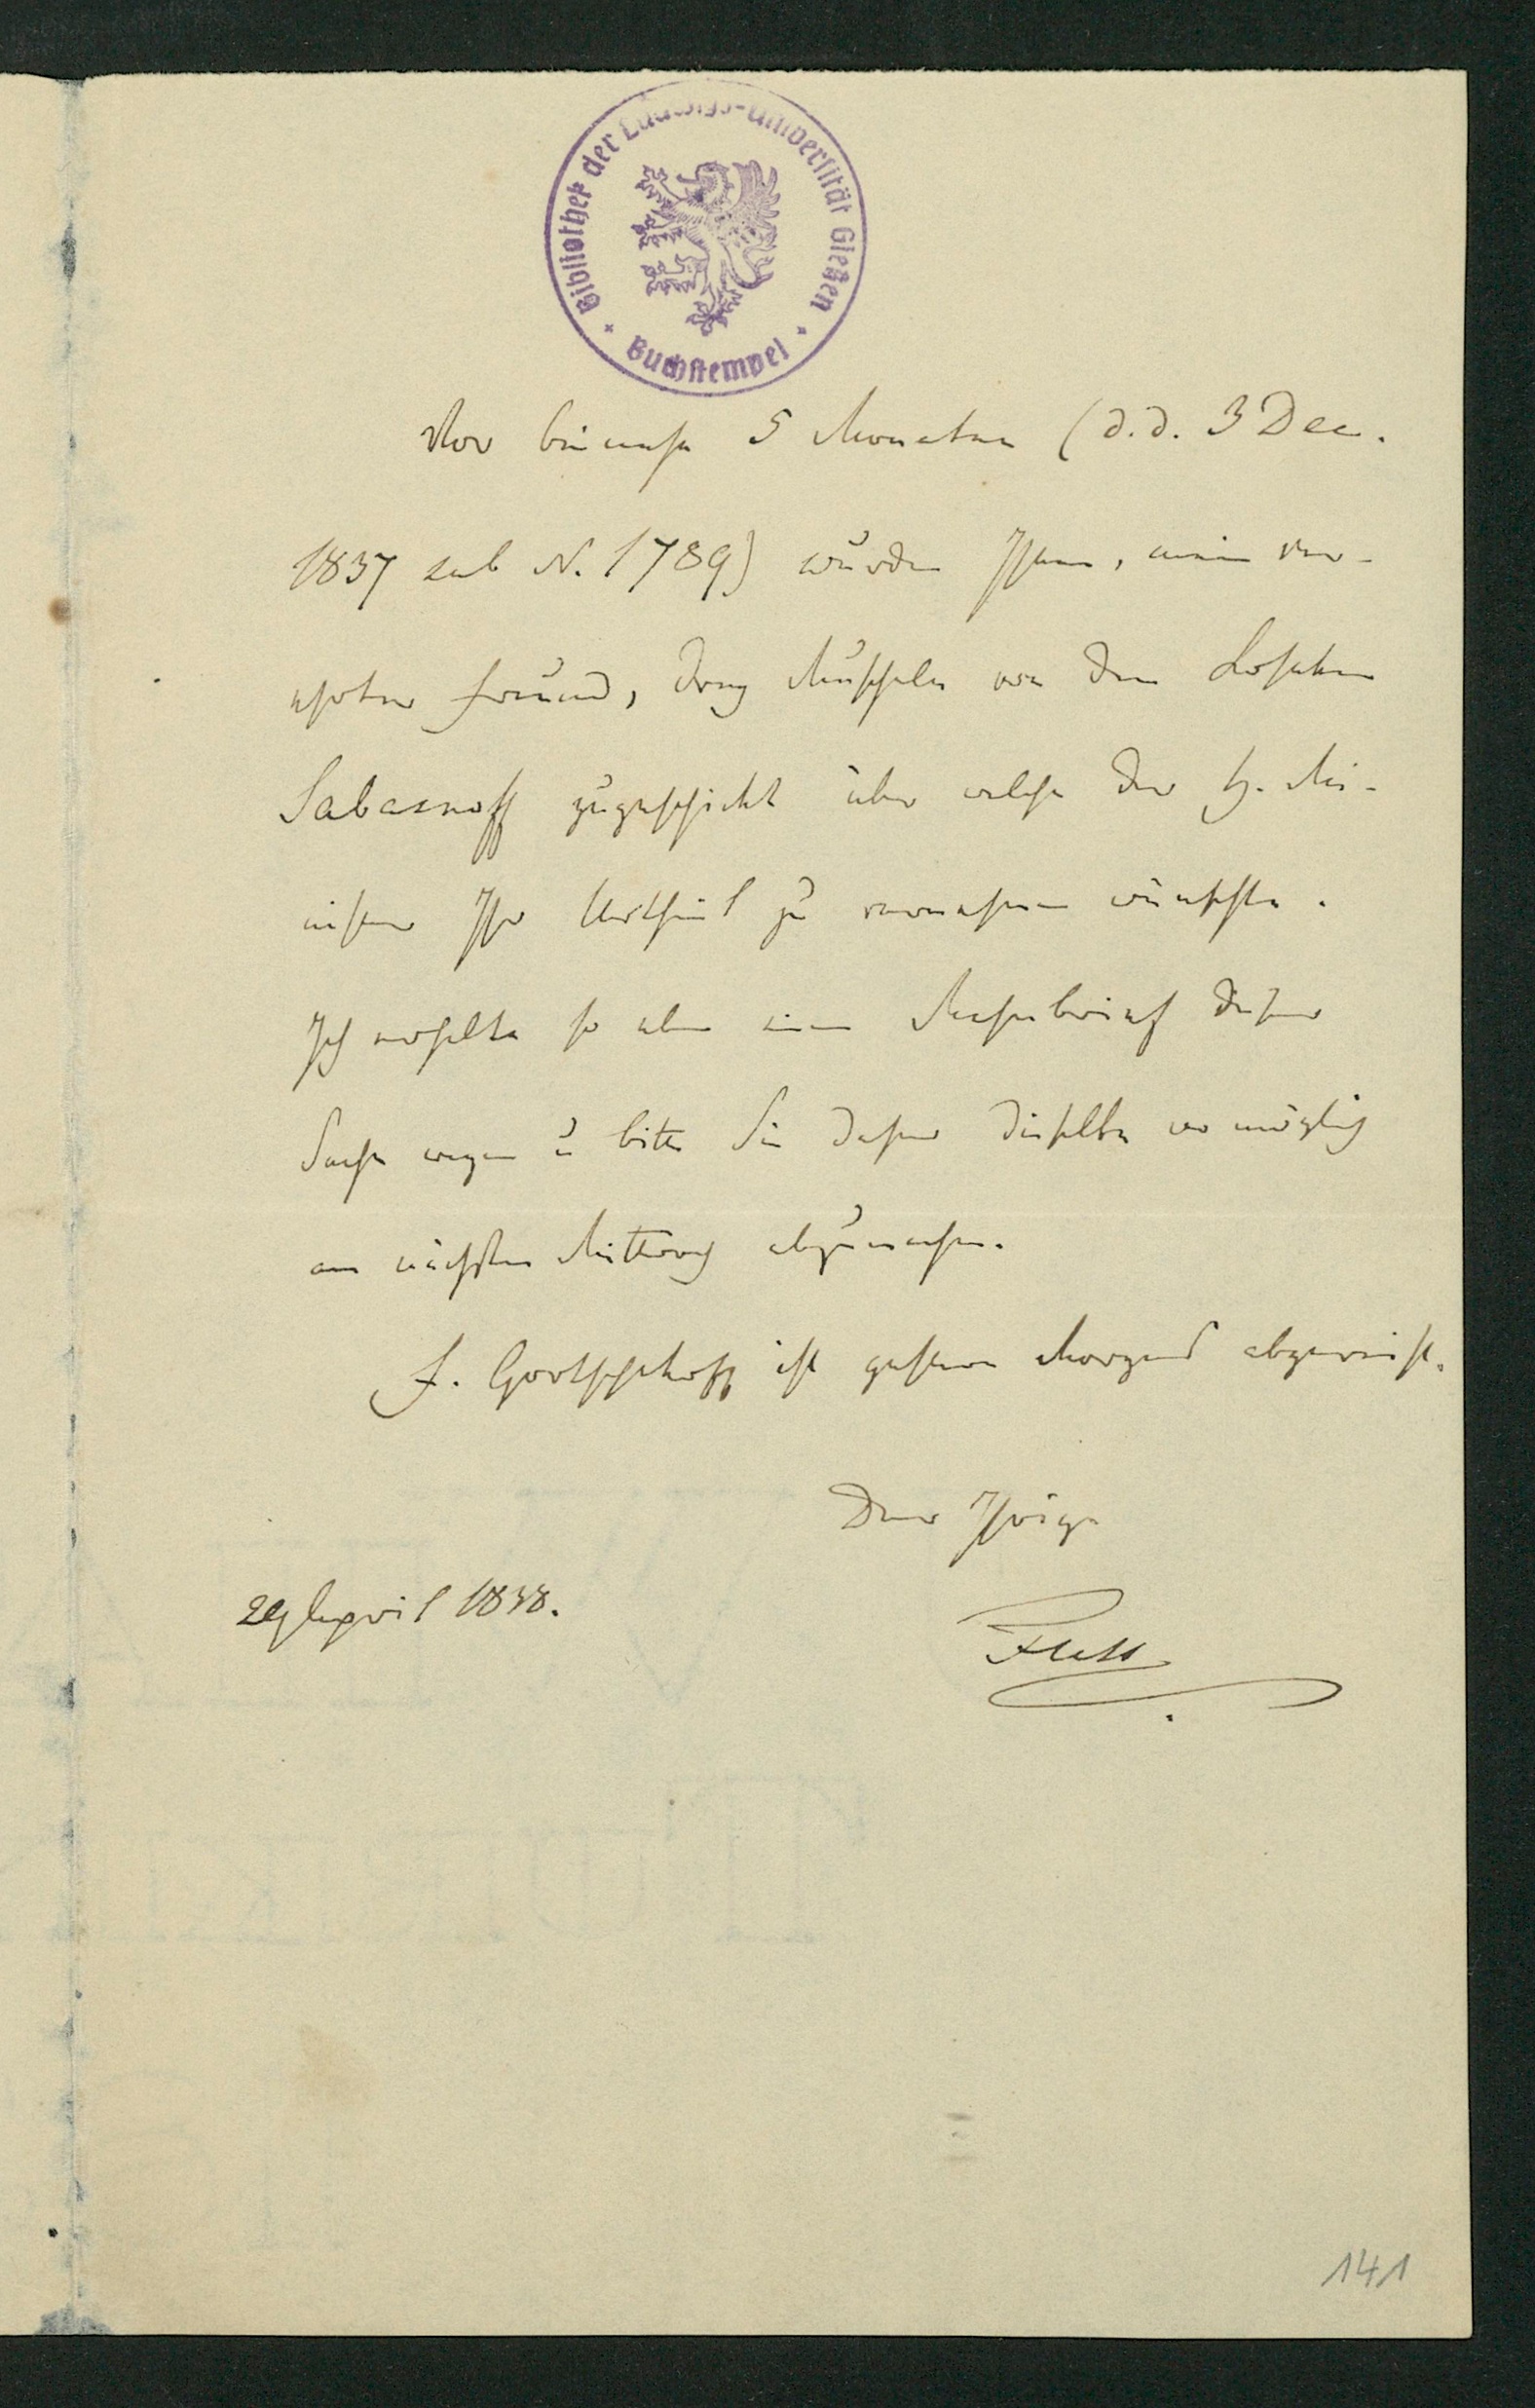 Bibliothek der Ludwigs-Universität Gießen
Buchstempel
Vor beinahe 5 Monaten (d.d. 3 Dec.
1837 sub N. 1789) wurden Ihnen, mein ver-
ehrter Freund, drey Muscheln von dem Kosaken
Sabasnoff zugeschickt über welche der H. Mi-
nister Ihr Urtheil zu vernehmen wünschte.
Ich erhalte so eben einen Mahnbrief dieser
Sache wegen u bitte Sie daher dieselbe wo möglich
am nächsten Mittwoch abzumachen.
F. Gortschakoff ist gestern Morgend abgereist.
Der Ihrige
29 April 1838.
Fuss
141